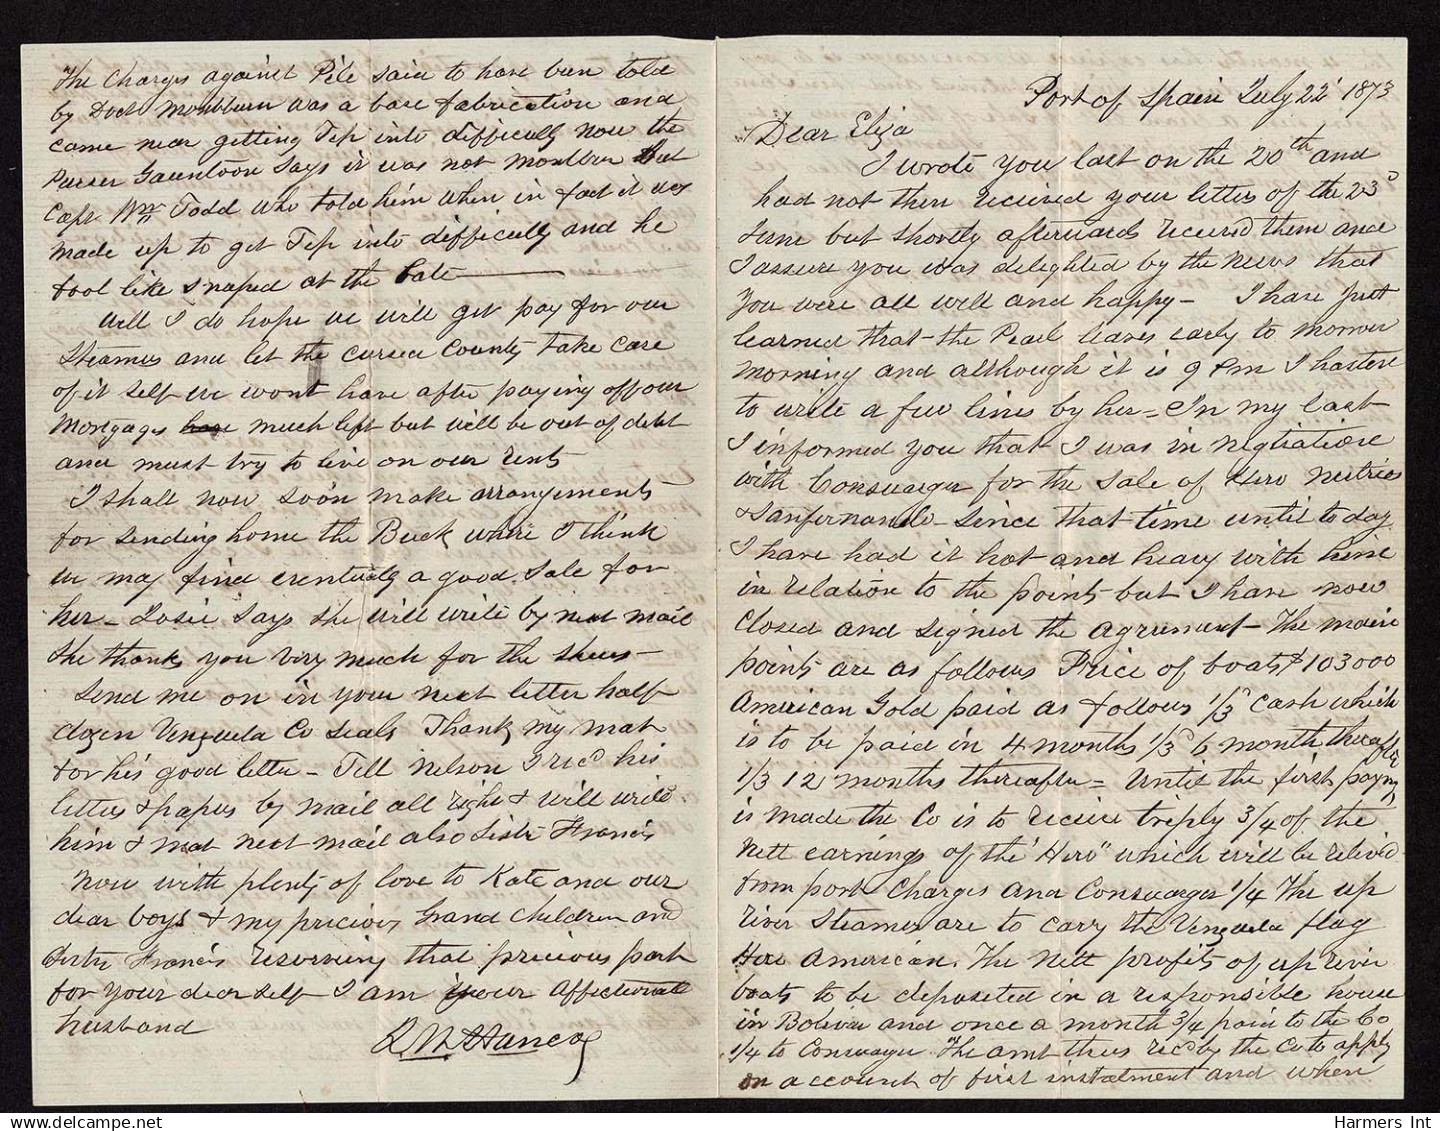 Port of Spain July 22' 1873
Dear Eliza
I wrote you last on the 20th and
had not then recieved your letters of the 23d
June but shortly afterwards received them and
I assure you was delighted by the news that
you were all well and happy - I have just
learned that the Pearl leaves early to morrow
morning and although it is 9 Pm I hasten
to write a few lines by her - In my last
I informed you that I was in negtiation
with for the sale of Hero Nutrias
& Sanfernando - Since that time until to day
I have had it hot and heavy with him
in relation to the points but I have now
closed and signed the agreement - The main
points are as follows Price of boats $103000
American Gold paid as follows 1/3d cash which
is to be paid in 4 months 1/3d 6 months thereafter
1/3 12 months thereafter = Until the first paymt
is made the Co is to recieve 3/4 of the
nett earnings of the "Hero" which will be relievd
from port charges and 1/4 The up
river Steamers are to carry the Venezuela flag
Hero American. The nett profits of up river
boats to be deposited in a responsible house
in Bolivar and once a month 3/4 paid to the Co
1/4 to The amt thus recd by the Co to apply
on account of first instalment and when
The charges against Pile said to have been told
by Doct was a base fabrication and
came near getting Tip into difficulty now the
Purser says it was not but
Capt Wm Todd who told him when in fact it was
made up to get Tip into difficulty and he
fool like snaped at the bate
Well I do hope we will get pay for our
Steamers and let the cursed County take care
of it self we wont have after paying off our
Mortgages have much left but will be out of debt
and must try to live on our rents
I shall now soon make arrangements
for sending home the Buck where I think
we may find eventually a good sale for
her - Josie says she will write by next mail
She thanks you very much for the shoes -
Send me on in your next letter half
dozen Venezuela Co Seals Thank my mat
for his good letter - Tell Nelson I recd his
letters & papers by mail all right & will write
him & mat next mail also Sister Francis
Now with plenty of love to Kate and our
dear boys & my precious Grand Children and
Sister Francis reserving that precious part
for your dear self I am your affectionate
husband
Harmers Int